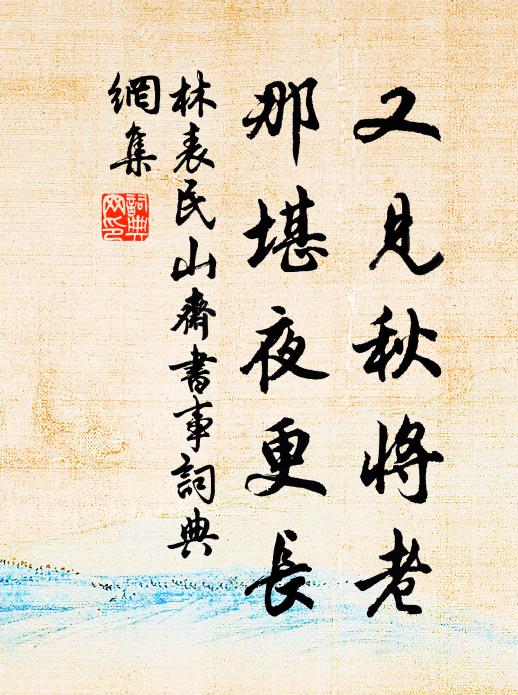 又見秋將老
那堪夜更長
林表民山齋書事詞典
網集
詞典
网印